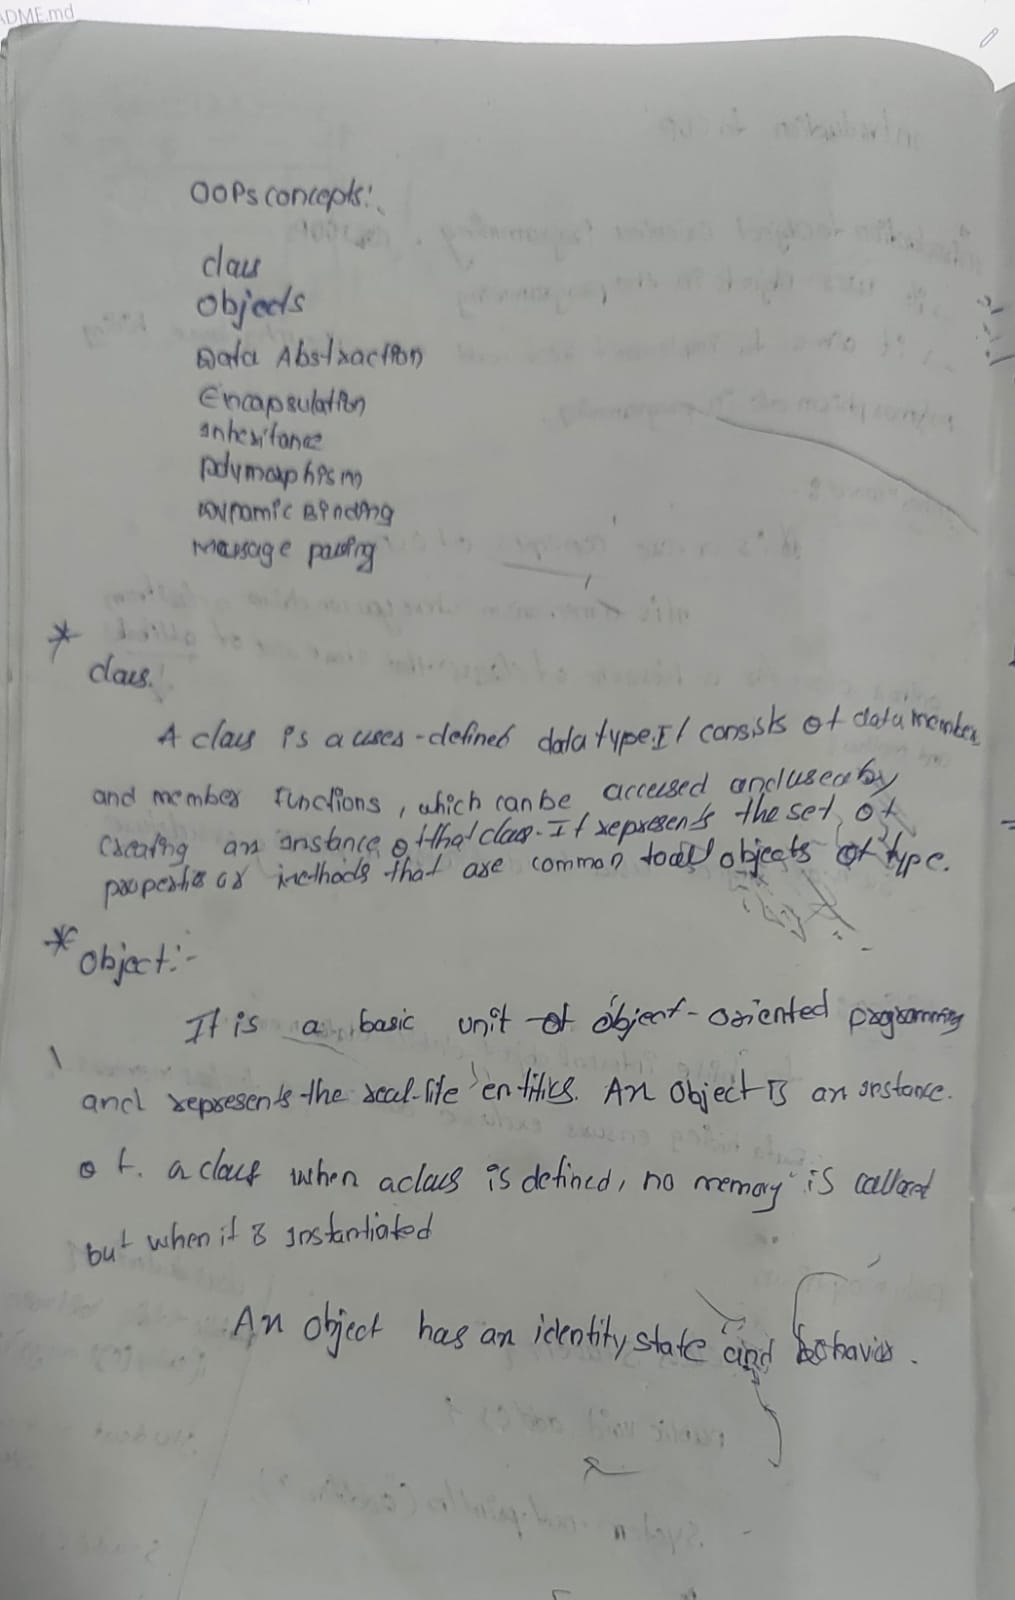 ADME.md
OOPs concepts:
class
Objects
Data Abstraction
Encapsulation
Inheritance
polymorphism
Dynamic Binding
Message passing
* class.
A class is a user-defined data type. It consists of data member
and member functions, which can be accessed and used by
creating an instance of that class. It represents the set of
properties or methods that are common to all objects of type.
* Object:-
It is a basic unit of object-oriented programming
and represents the real-life entities. An Object is an instance.
of. a class when a class is defined, no memory is
but when it is instantiated
An object has an identity state and behavior.